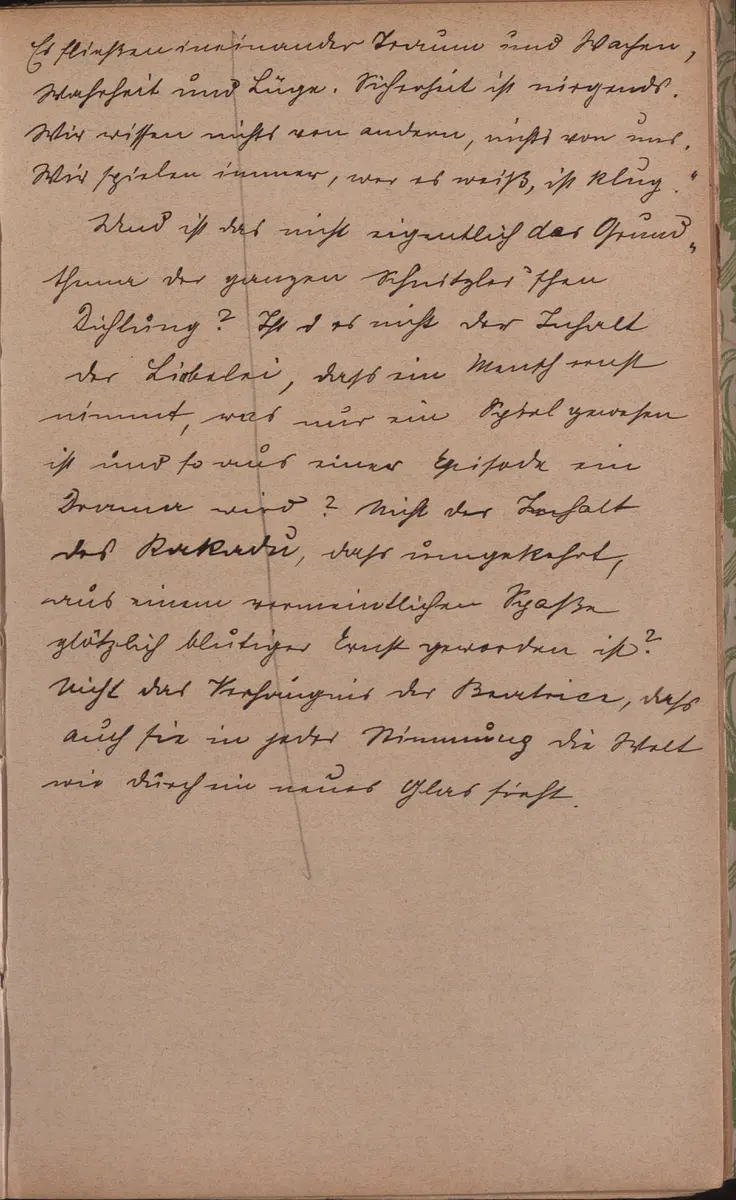 Es fließen ineinander Traum und Wachen,
Wahrheit und Lüge. Sicherheit ist nirgends.
Wir wissen nichts von andern, nichts von uns.
Wir spielen immer, wer es weiß, ist klug."
Und ist das nicht eigentlich das Grund„
thema der ganzen Schnitzler'schen
Dichtung? Ist es nicht der Inhalt
der Liebelei, dass ein Mensch ernst
nimmt, was nur ein Spiel gewesen
ist und so aus einer Episode ein
Drama wird? Nicht der Inhalt
des Kakadu, dass umgekehrt,
aus einem vermeintlichen Spaße
plötzlich blutiger Ernst geworden ist?
Nicht das Verhängnis der Beatrice, dass
auch sie in jeder Stimmung die Welt
wie durch ein neues Glas sieht.